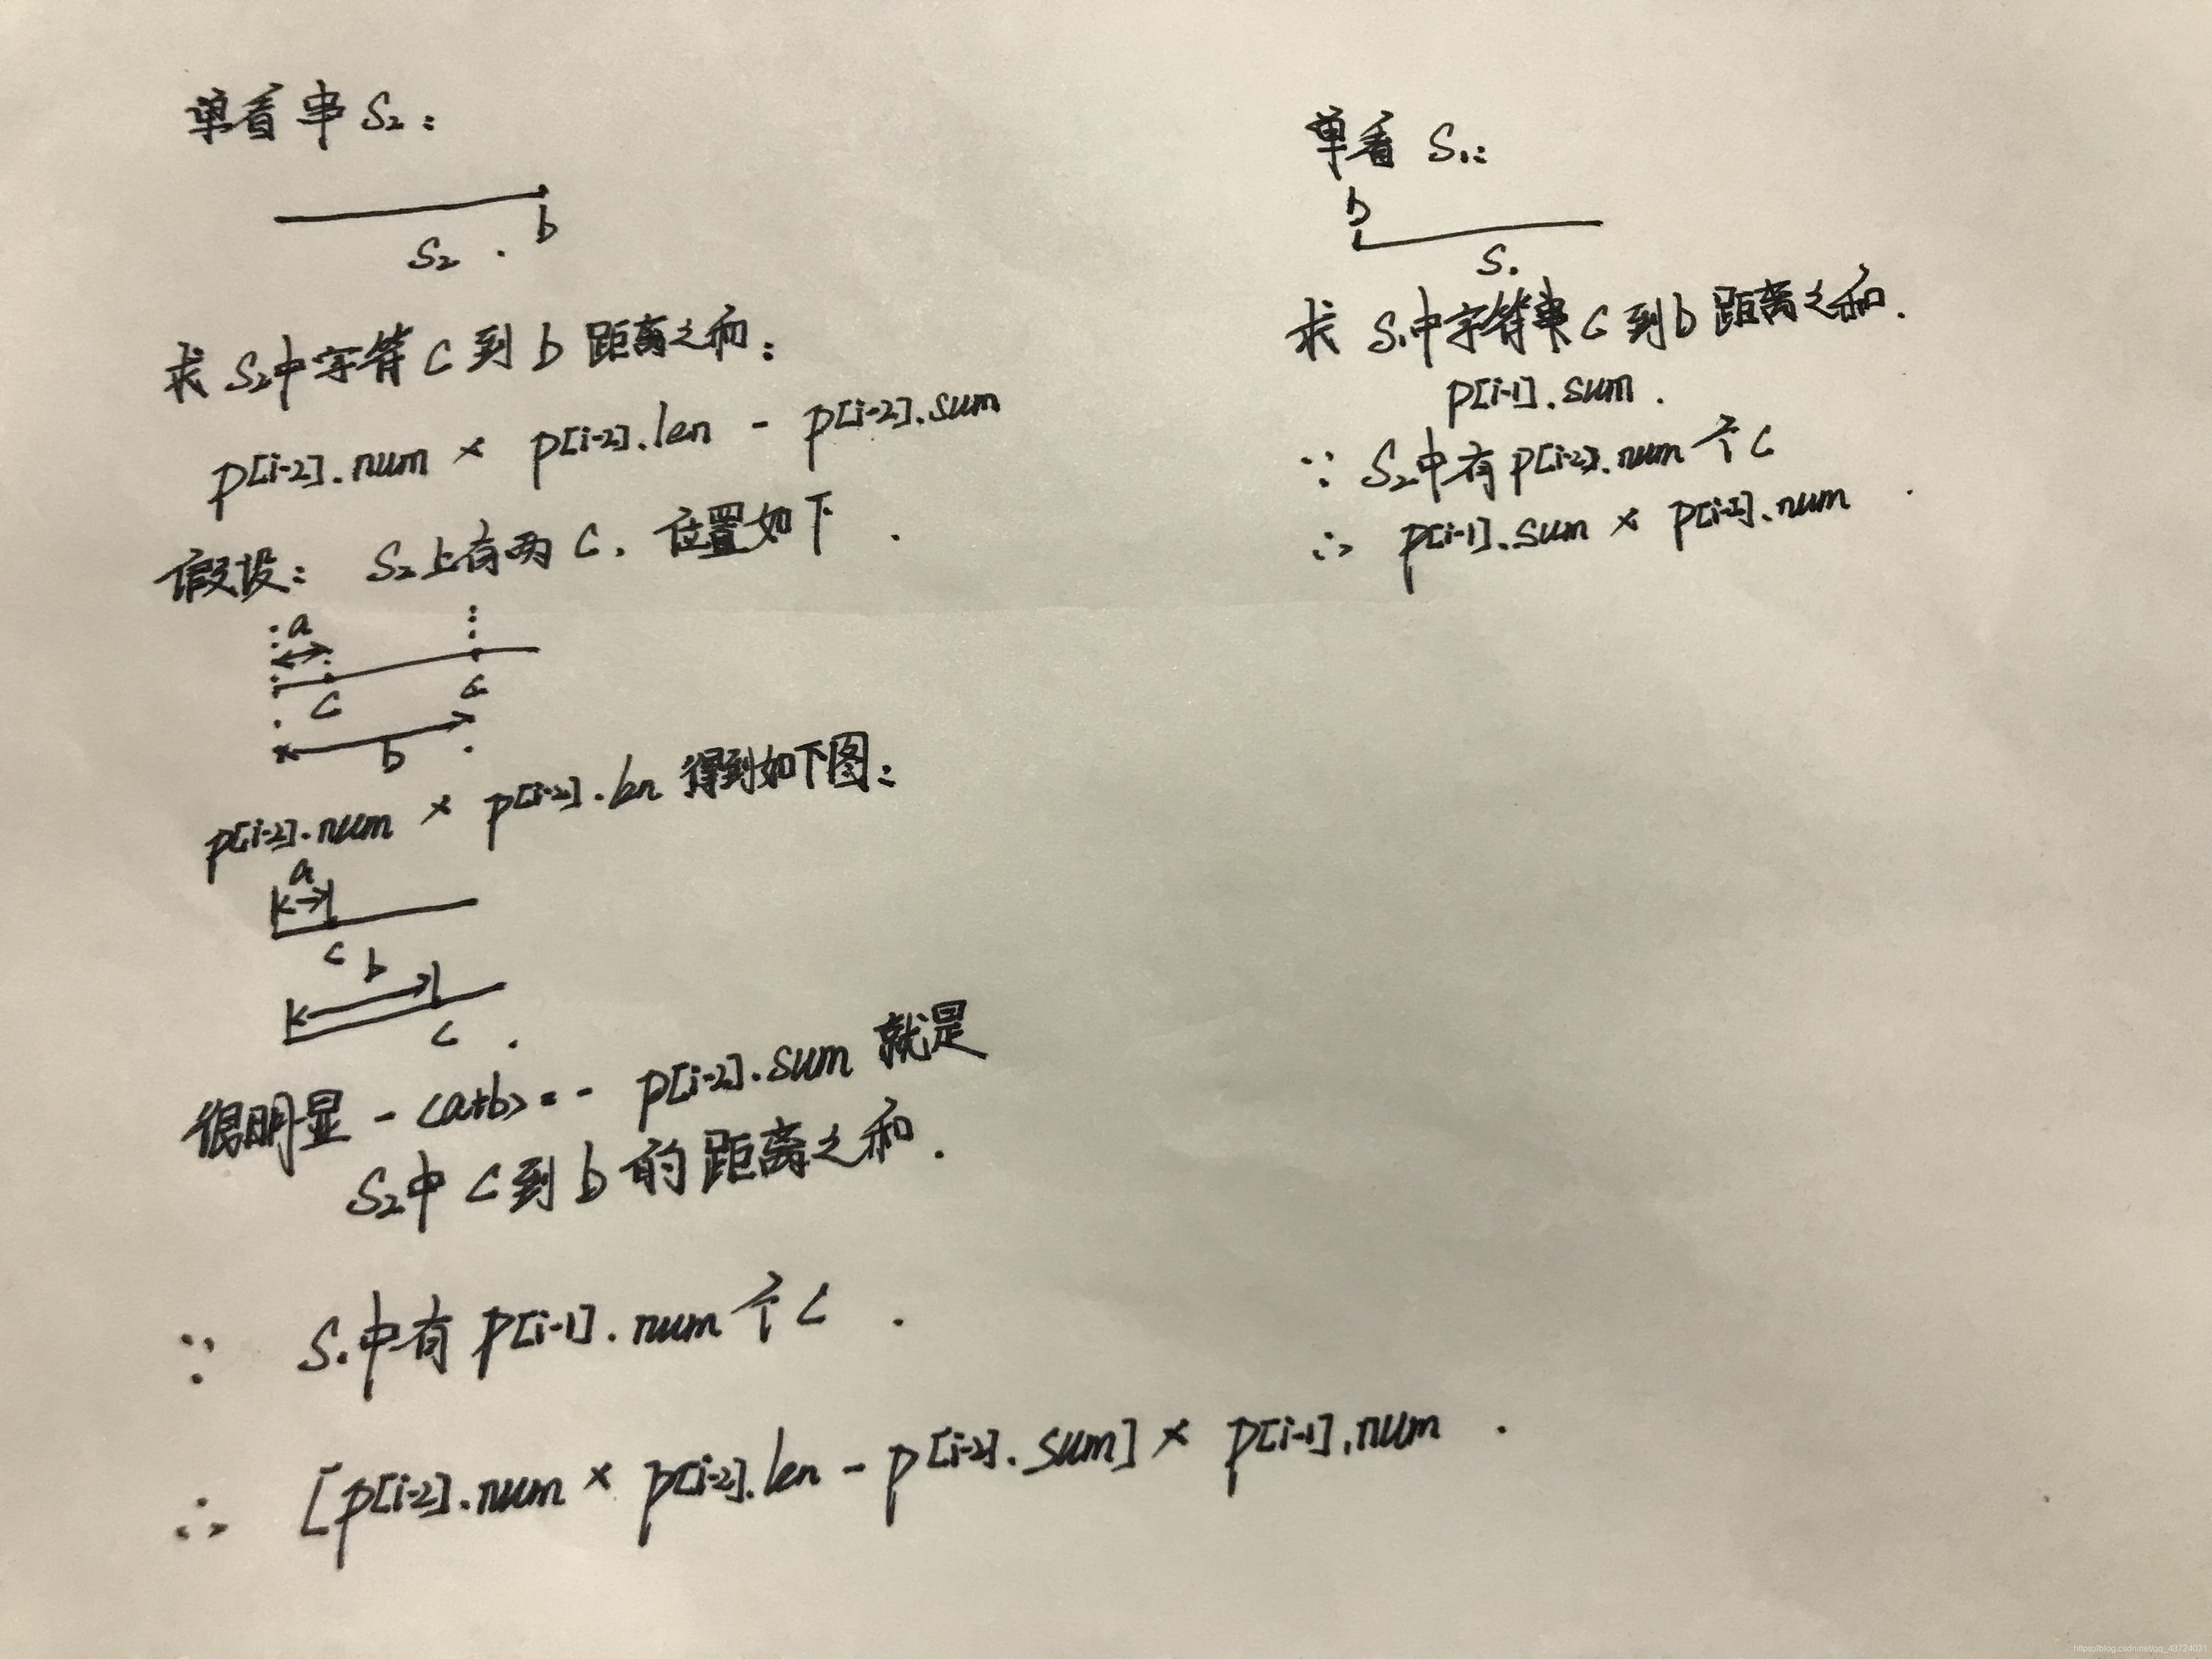 单看串 S₂:
b
S₂ .
求 S₂中字符 C 到 b 距离之和:
p[i-2].num × p[i-2].len - p[i-2].sum
假设: S₂上有两 C, 位置如下 .
a
C C
b
p[i-2].num × p[i-2].len 得到如下图:
a
C
b
C .
很明显 - <a+b> = - p[i-2].sum 就是
S₂中 C 到 b 的 距离之和.
∵ S₁中有 p[i-1].num 个 C .
∴ [p[i-2].num × p[i-2].len - p[i-2].sum] × p[i-1].num .
单看 S₁:
b
S₁
求 S₁中字符串 C 到 b 距离之和.
p[i-1].sum .
∵ S₂中有 p[i-2].num 个 C
∴ p[i-1].sum × p[i-2].num .
https://blog.csdn.net/qq_43724031